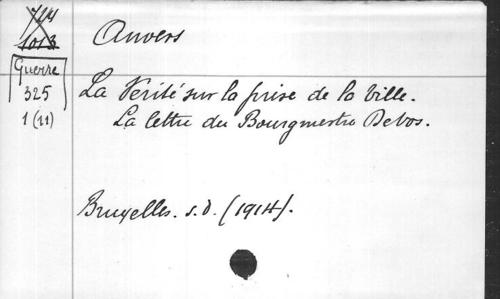 1013
Anvers
Guerre
325
1 (11)
La Vérité sur la prise de la Ville.
La lettre du Bourgmestre Devos.
Bruxelles. s.d. (1914).